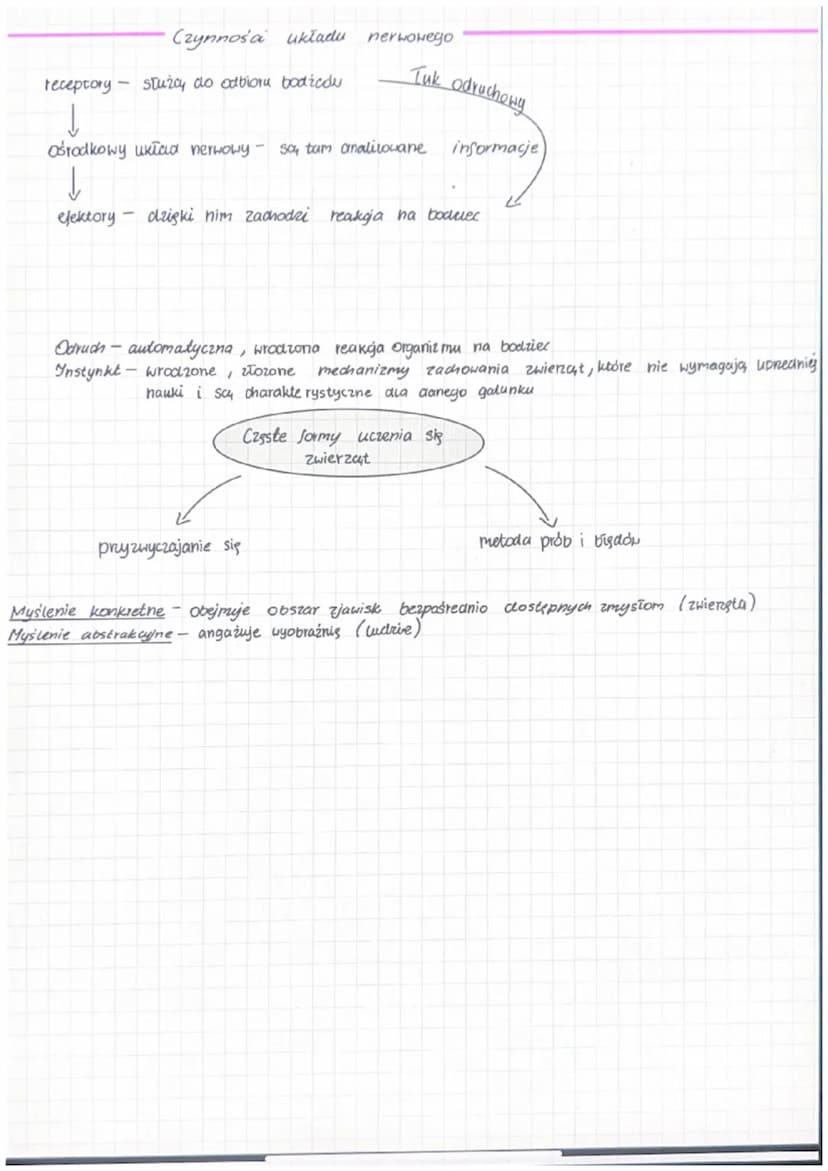 Czynności układu nerwowego
receptory – służą do odbioru bodźców
Łuk odruchowy
ośrodkowy układ nerwowy – są tam analizowane informacje
efektory – dzięki nim zachodzi reakcja na bodziec
Odruch – automatyczna, wrodzona reakcja organizmu na bodziec
Instynkt – wrodzone, złożone mechanizmy zachowania zwierząt, które nie wymagają uprzedniej
nauki i są charakterystyczne dla danego gatunku
Częste formy uczenia się
zwierząt
przyzwyczajanie się
metoda prób i błędów
Myślenie konkretne – obejmuje obszar zjawisk bezpośrednio dostępnych zmysłom (zwierzęta)
Myślenie abstrakcyjne – angażuje wyobraźnię (ludzie)